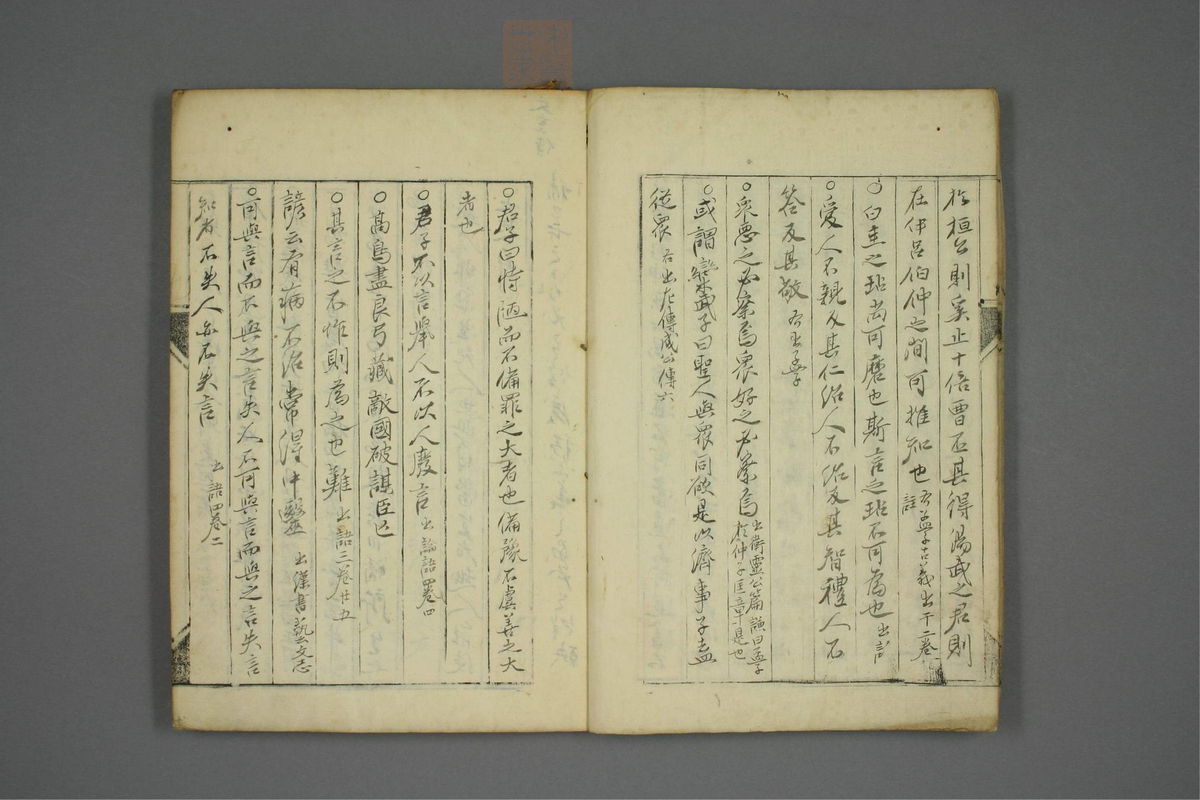 於桓公則奚止十倍曹丕其得湯武之君則
在伊呂伯仲之間可推知也 右孟子古義出十二卷註
○白圭之玷尚可磨也斯言之玷不可為也 出詩
○愛人不親反其仁治人不治反其智禮人不
答反其敬 右出孟子
○衆悪之必察焉衆好之必察焉 出衛霊公篇 謙曰孟子於仲子匡章是也
○或謂欒武子曰聖人與衆同欲是以濟事子盍
從衆 右出左傳成公傳六
○君子曰恃陋而不備罪之大者也備豫不虞善之大
者也
○君子不以言舉人不以人廢言 出論語四卷四
○高鳥盡良弓藏敵國破謀臣亡
○其言之不怍則為之也難 出語三卷廿五
諺云有病不治常得中醫 出漢書藝文志
○可與言而不與之言失人不可與言而與之言失言
知者不失人亦不失言 出語四卷二